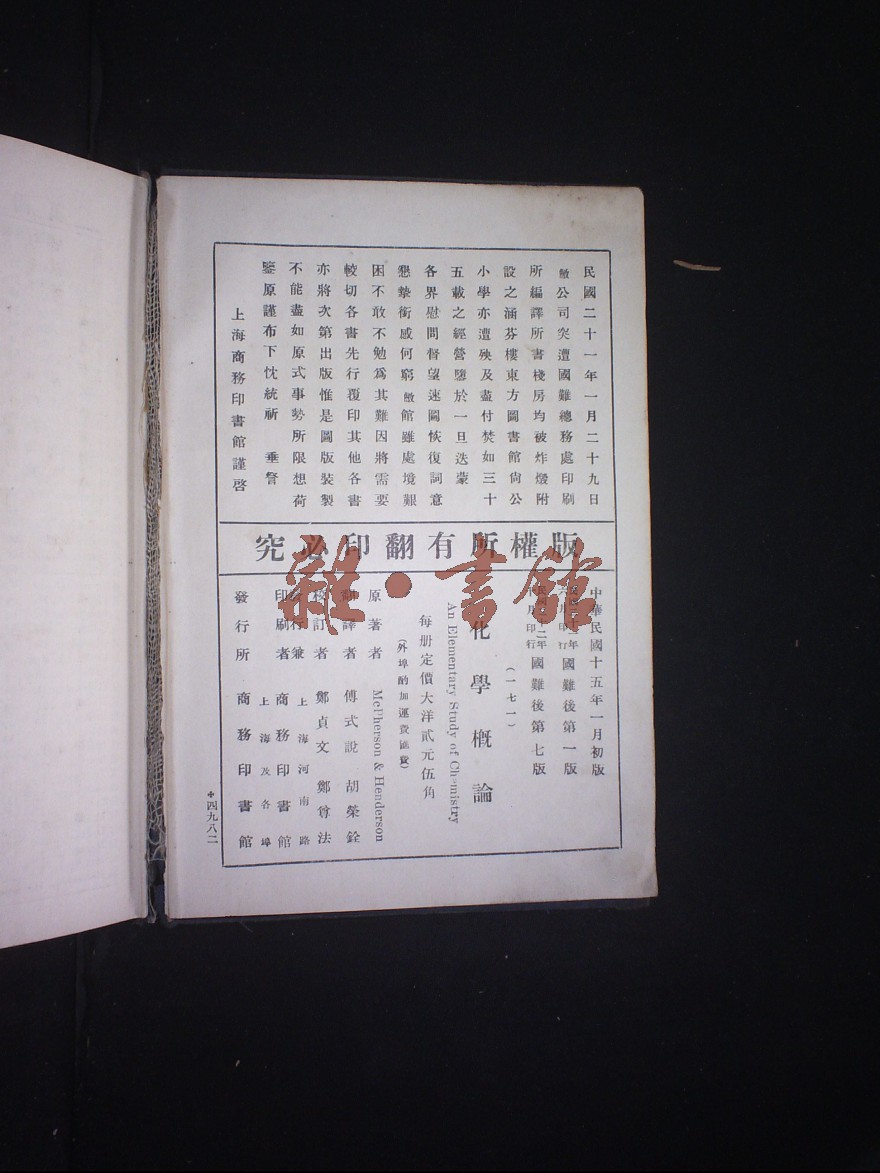 民國二十一年一月二十九日
敝公司突遭國難總務處印刷
所編譯所書棧房均被炸燬附
設之涵芬樓東方圖書館尙公
小學亦遭殃及盡付焚如三十
五載之經營隳於一旦迭蒙
各界慰問督望速圖恢復詞意
懇摯銜感何窮敝館雖處境艱
困不敢不勉爲其難因將需要
較切各書先行覆印其他各書
亦將次第出版惟是圖版裝製
不能盡如原式事勢所限想荷
鑒原謹布下忱統祈 垂詧
上海商務印書館謹啓
版權所有翻印必究
中華民國十五年一月初版
六月印行 國難後第一版
月印行 國難後第七版
(一七一)
化學概論
An Elementary Study of Chemistry
每册定價大洋貳元伍角
(外埠酌加運費匯費)
原著者 McPherson & Henderson
翻譯者 傅式說 胡榮銓
校訂者 鄭貞文 鄭尊法
發行兼印刷者 上海河南路 商務印書館
發行所 上海及各埠 商務印書館
四九八二
雜·書館